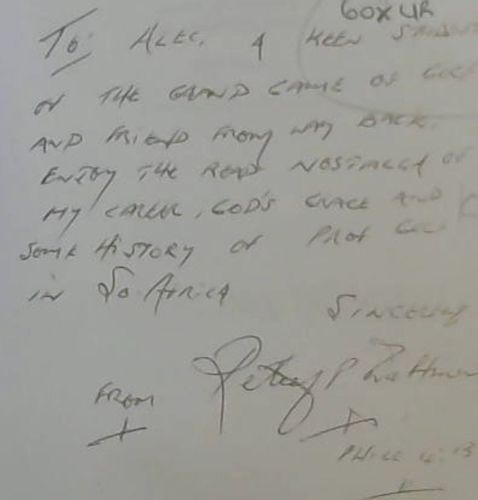 60X4R
To: ALEC. A KEEN STUDENT
OF THE GRAND GAME OF GOLF
AND FRIEND FROM WAY BACK.
ENJOY THE READ NOSTALGA OF
MY CAREER, GOD'S GRACE AND
SOME HISTORY OF PROF GOL
IN So AFRICA
SINCERELY
FROM
PHILL 4:13